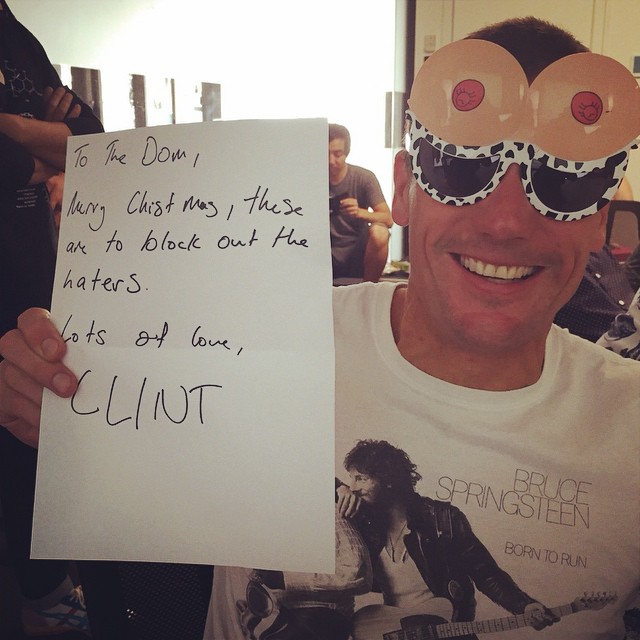 To The Dom,
Merry Chistmas, these
are to block out the
haters.
Lots of love,
CLINT
BRUCE
SPRINGSTEEN
BORN TO RUN